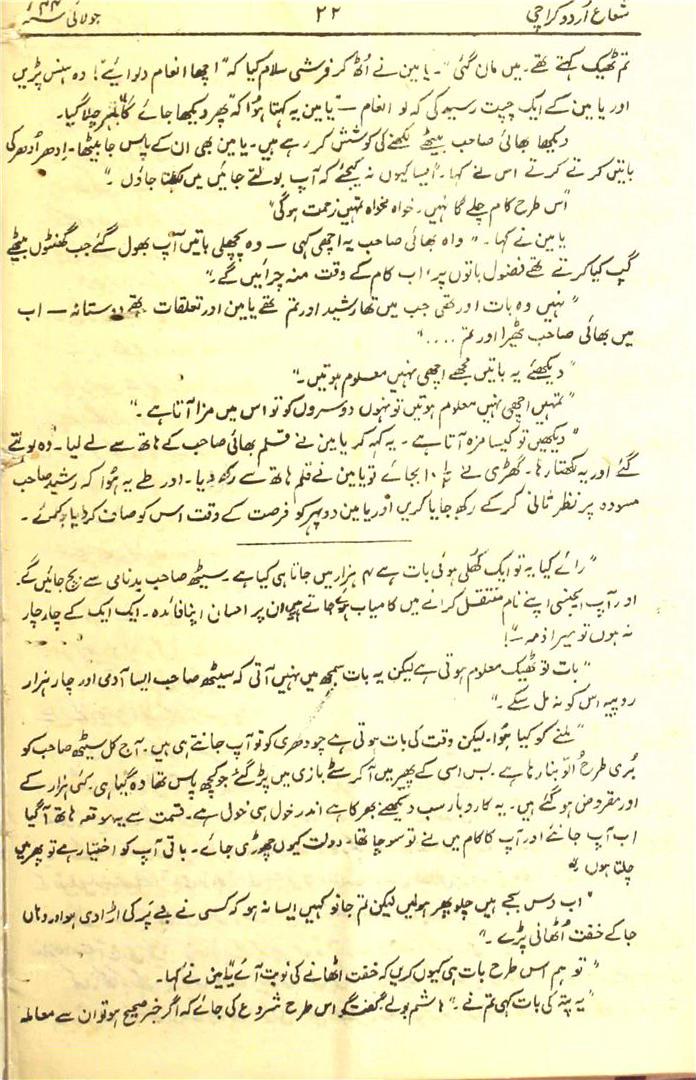 شعاع اُردو کراچی ۲۲ جولائی سنہ ۴۴ء
تم ٹھیک کہتے تھے۔ میں مان گئی“۔ یامین نے اُٹھ کر فرشی سلام کیا کہ ”اچھا انعام دلوائیے! وہ ہنس پڑیں
اور یامین کے ایک چپت رسید کی کہ لو انعام — ”یامین یہ کہتا ہوا کہ پھر دیکھا جائے گا“ باہر چلا گیا۔
دیکھا بھائی صاحب بیٹھے لکھنے کی کوشش کر رہے ہیں۔ یامین بھی ان کے پاس جا بیٹھا۔ اِدھر اُدھر کی
باتیں کرتے کرتے اس نے کہا۔ ”ایسا کیوں نہ کیجئے کہ آپ بولتے جائیں میں لکھتا جاؤں۔“
”اس طرح کام چلے گا نہیں۔ خواہ مخواہ تمہیں زحمت ہوگی“
یامین نے کہا۔ ”واہ بھائی صاحب یہ اچھی کہی — وہ پچھلی باتیں آپ بھول گئے جب گھنٹوں بیٹھے
گپ کیا کرتے تھے فضول باتوں پر، اب کام کے وقت منہ چرائیں گے۔“
”نہیں وہ بات اور تھی جب میں تھا رشید اور تم تھے یامین اور تعلقات تھے دوستانہ — اب
میں بھائی صاحب ٹھیرا اور تم ....“
”دیکھئے یہ باتیں مجھے اچھی نہیں معلوم ہوتیں۔“
”تمہیں اچھی نہیں معلوم ہوتیں تو نہوں دوسروں کو تو اس میں مزا آتا ہے۔“
”دیکھیں تو کیسا مزہ آتا ہے۔ یہ کہہ کر یامین نے قلم بھائی صاحب کے ہاتھ سے لے لیا۔ وہ بولتے
گئے اور یہ لکھتا رہا۔ گھڑی نے ½۱۰ بجائے تو یامین نے قلم ہاتھ سے رکھ دیا۔ اور طے یہ ہُوا کہ رشید صاحب
مسودہ پر نظر ثانی کر کے رکھ جایا کریں اور یامین دوپہر کو فرصت کے وقت اس کو صاف کر دیا کرے۔
”رائے کیا یہ تو ایک کُھلی ہوئی بات ہے ۴ ہزار میں جاتا ہی کیا ہے۔ سیٹھ صاحب بدنامی سے بچ جائیں گے۔
اور آپ ایجنسی اپنے نام منتقل کرانے میں کامیاب ہوئے جاتے ہیں ان پر احسان اپنا فائدہ۔ ایک ایک کے چار چار
نہ ہوں تو میرا ذمہ —“!
”بات تو ٹھیک معلوم ہوتی ہے لیکن یہ بات سمجھ میں نہیں آتی کہ سیٹھ صاحب ایسا آدمی اور چار ہزار
روپیہ اس کو نہ مل سکے۔“
”ملنے کو کیا ہُوا۔ لیکن وقت کی بات ہوتی ہے چودھری کو تو آپ جانتے ہی ہیں۔ آج کل سیٹھ صاحب کو
بُری طرح اُلّو بنا رہا ہے۔ بس اسی کے پھیر میں آکر سٹے بازی میں پڑ گئے جو کچھ پاس تھا وہ گیا ہی۔ کئی ہزار کے
اور مقروض ہو گئے ہیں۔ یہ کاروبار سب دیکھنے بھر کا ہے اندر خول ہی خول ہے۔ قسمت سے یہ موقعہ ہاتھ آ گیا
اب آپ جانئے اور آپ کا کام میں نے تو سوچا تھا۔ دولت کیوں چھوڑی جائے۔ باقی آپ کو اختیار ہے تو پھر میں
چلتا ہوں۔“
”اب دس بجے ہیں چلو پھر ہولیں لیکن تم جانو کہیں ایسا نہ ہو کہ کسی نے بے پَر کی اڑا دی ہو اور وہاں
جا کے خفت اُٹھانی پڑے۔“
”تو ہم اس طرح بات ہی کیوں کریں کہ خفت اٹھانے کی نوبت آئے“ یامین نے کہا۔
”یہ پتہ کی بات کہی تم نے۔“ ہاشم بولے ”گفتگو اس طرح شروع کی جائے کہ اگر خبر صحیح ہو تو ان سے معاملہ